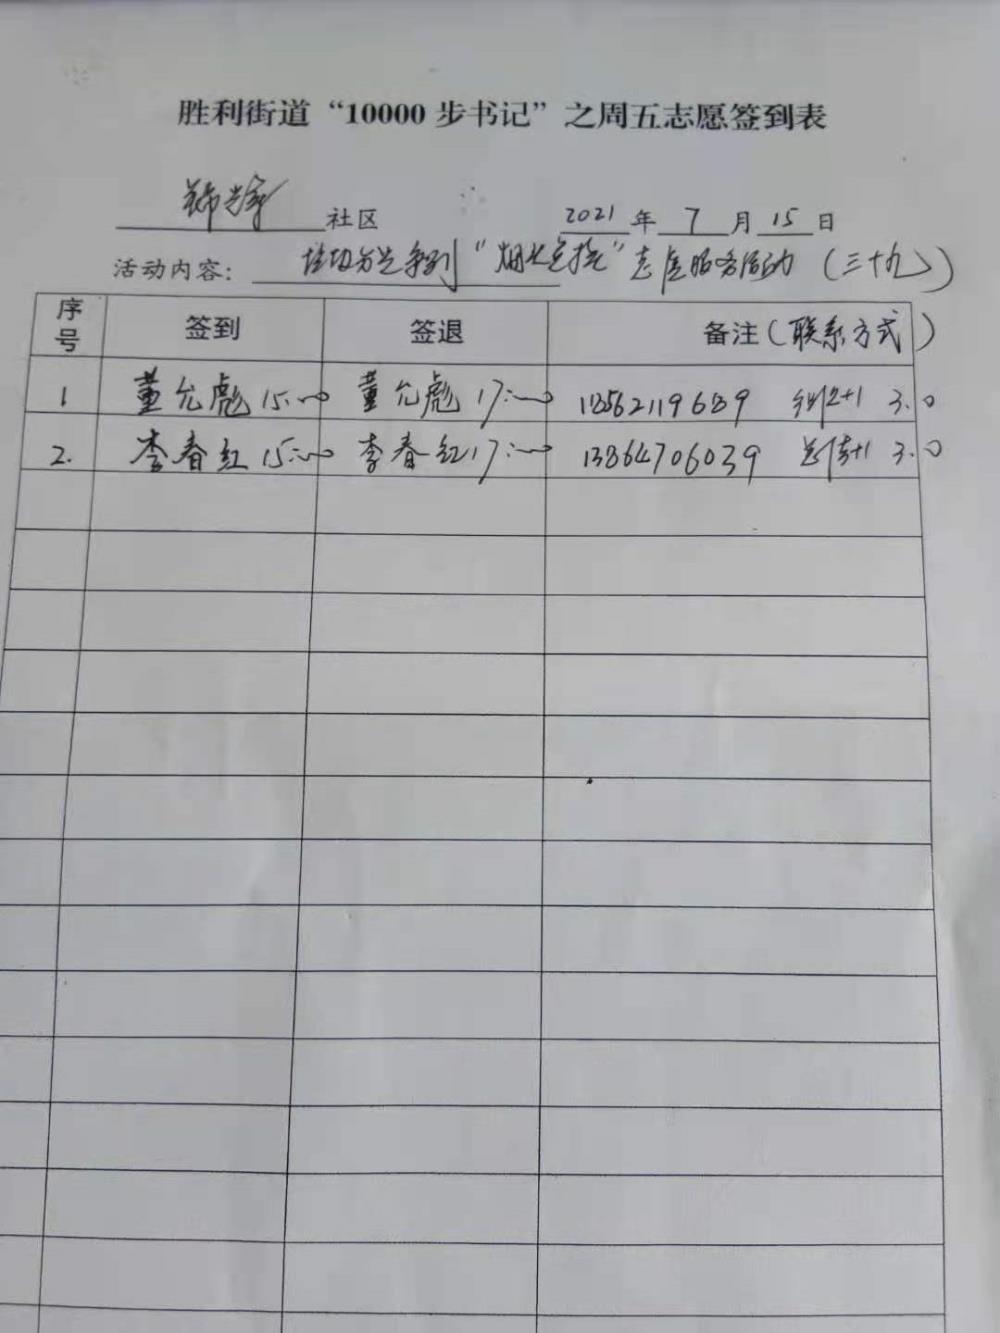 胜利街道“10000步书记”之周五志愿签到表
社区 2021年7月15日
活动内容：垃圾分类 “烟火” 志愿服务活动（三十九）
序号 签到 签退 备注（联系方式）
1 董允彪 15:00 董允彪 17:00 18562119689 3.0
2. 李春红 15:00 李春红 17:00 13864706039 3.0